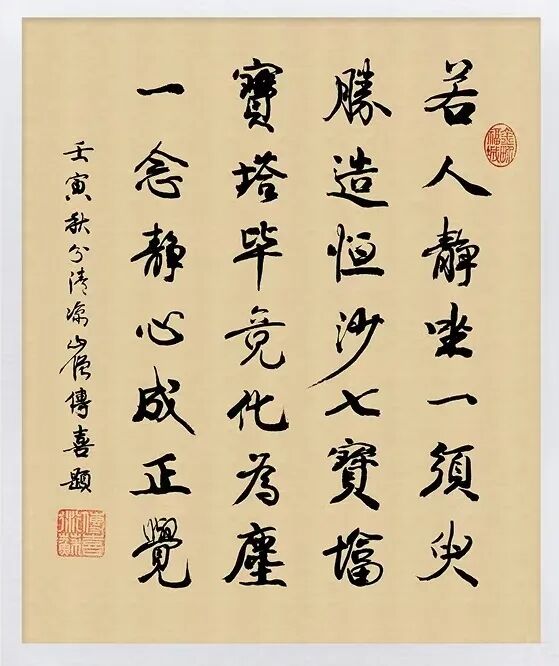 若人靜坐一須臾
勝造恒沙七寶墖
寶塔毕竟化為塵
一念靜心成正覺
壬寅秋分清凉山僧傳喜題